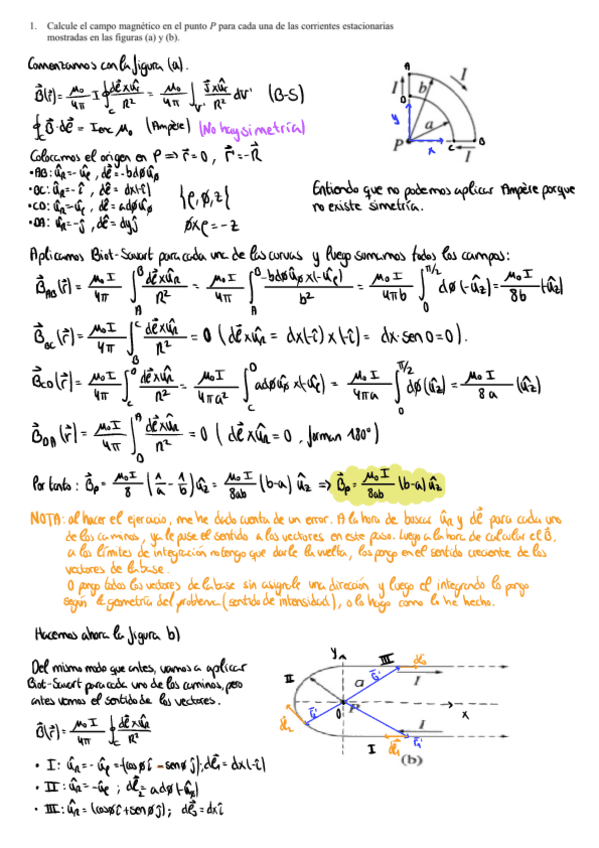 1. Calcule el campo magnético en el punto P para cada una de las corrientes estacionarias
mostradas en las figuras (a) y (b).
Comenzamos con la figura (a).
B⃗(r⃗) = μ₀/4π I ∮_C dℓ⃗ x û_R / R² = μ₀/4π ∫_V' J⃗ x û_R / R² dV' (B-S)
∮_C B⃗·dℓ⃗ = I_enc μ₀ (Ampère) (No hay simetría)
Colocamos el origen en P => r⃗ = 0, r⃗' = -R⃗
• AB: û_R = -û_ρ, dℓ⃗ = -b dø û_ø
• BC: û_R = -î, dℓ⃗ = dx(-î)
• CD: û_R = -û_ρ, dℓ⃗ = a dø û_ø
• DA: û_R = -ĵ, dℓ⃗ = dy ĵ
{ρ, ø, z}
ø x ρ = -z
A
I
I
D
b
y
a
P
x
C
B
I
Entiendo que no podemos aplicar Ampère porque
no existe simetría.
Aplicamos Biot-Savart para cada una de las curvas y luego sumamos todos los campos:
B⃗_AB(r⃗) = μ₀I/4π ∫_A^B dℓ⃗ x û_R / R² = μ₀I/4π ∫_A^B -b dø û_ø x (-û_ρ) / b² = μ₀I/4πb ∫_0^π/2 dø(-û_z) = μ₀I/8b (-û_z)
B⃗_BC(r⃗) = μ₀I/4π ∫_B^C dℓ⃗ x û_R / R² = 0 (dℓ⃗ x û_R = dx(-î) x (-î) = dx·sen 0 = 0).
B⃗_CD(r⃗) = μ₀I/4π ∫_C^D dℓ⃗ x û_R / R² = μ₀I/4πa² ∫_C^D a dø û_ø x (-û_ρ) = μ₀I/4πa ∫_0^π/2 dø(û_z) = μ₀I/8a (û_z)
B⃗_DA(r⃗) = μ₀I/4π ∫_D^A dℓ⃗ x û_R / R² = 0 (dℓ⃗ x û_R = 0, forman 180°)
Por tanto: B⃗_P = μ₀I/8 (1/a - 1/b) û_z = μ₀I/8ab (b-a) û_z => B⃗_P = μ₀I/8ab (b-a) û_z
NOTA: al hacer el ejercicio, me he dado cuenta de un error. A la hora de buscar û_R y dℓ⃗ para cada uno
de los caminos, ya le puse el sentido a los vectores en este paso. Luego a la hora de calcular el B⃗.
a los límites de integración no tengo que darle la vuelta, los pongo en el sentido creciente de los
vectores de la base.
O pongo todos los vectores de la base sin asignarle una dirección y luego el integrando lo pongo
según la geometría del problema (sentido de intensidad), o lo hago como la he hecho.
Hacemos ahora la figura b)
Del mismo modo que antes, vamos a aplicar
Biot-Savart para cada uno de los caminos, pero
antes vemos el sentido de los vectores.
B⃗(r⃗) = μ₀I/4π ∮_C dℓ⃗ x û_R / R²
• I: û_R = -û_ρ = -(cosø î - senø ĵ); dℓ⃗₁ = dx(-î)
• II: û_R = -û_ρ; dℓ⃗₂ = a dø(-û_ø)
• III: û_R = (cosø î + senø ĵ); dℓ⃗₃ = dx î
y
III
II
a
I
O
P
x
I
I
(b)